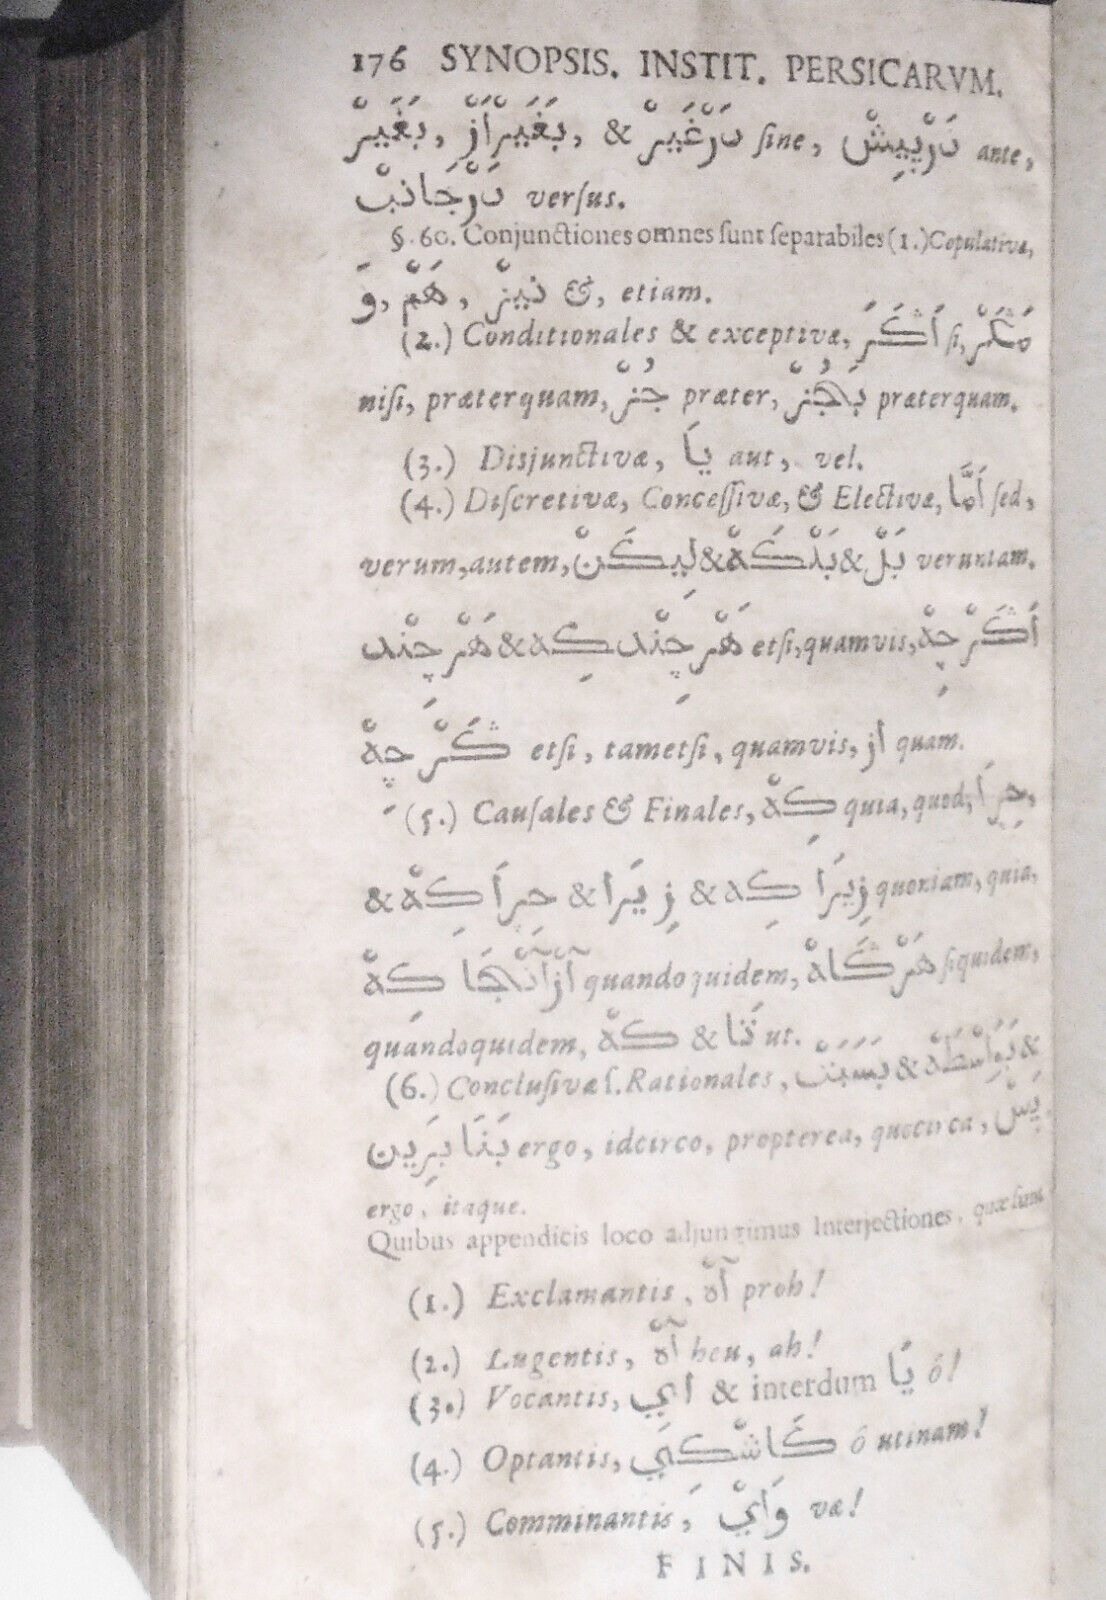 176 SYNOPSIS. INSTIT. PERSICARVM.
بَغَيرْ, بَغَيرْاَزْ, & دَرْغَيرْ ſine, دَرْپيِشْ ante,
دَرْجَانبْ verſus.
§. 60. Conjunctiones omnes ſunt ſeparabiles (1.) Copulativæ,
وَ, هَمْ, نيزْ &, etiam.
(2.) Conditionales & exceptivæ, اَݣَرَ ſi, مَݣَرْ
niſi, præterquam, جُزْ præter, بَجُزْ præterquam.
(3.) Disjunctivæ, يَا aut, vel.
(4.) Diſcretivæ, Conceſſivæ, & Electivæ, اَمَّا ſed,
verum, autem, ليكَنْ & بَلْكَهْ & بَلْ veruntam.
اَݣَرْچِهْ etſi, quamvis, هَرْچِنْد كِه & هَرْچِنْد
ݣَرْچِهْ etſi, tametſi, quamvis, از quam.
(5.) Cauſales & Finales, كهْ quia, quod, چِرَا,
& چِرَا كهْ & زِيَرا & زِيرَا كِه quoniam, quia,
اَزْآنْجَا كهْ quandoquidem, هَرْݣَاهْ ſiquidem,
quandoquidem, كهْ & تَا ut.
(6.) Concluſivæ ſ. Rationales, بَسَبَبْ & بَوَاسْطَهْ &
بَنَا بَرِين ergo, idcirco, propterea, quocirca, پَسْ
ergo, itaque.
Quibus appendicis loco adjungimus Interjectiones, quæ ſunt
(1.) Exclamantis, آهْ proh!
(2.) Lugentis, آهْ heu, ah!
(3.) Vocantis, اي & interdum يَا ó!
(4.) Optantis, كَاشْكَي ó utinam!
(5.) Comminantis, وَايْ væ!
FINIS.